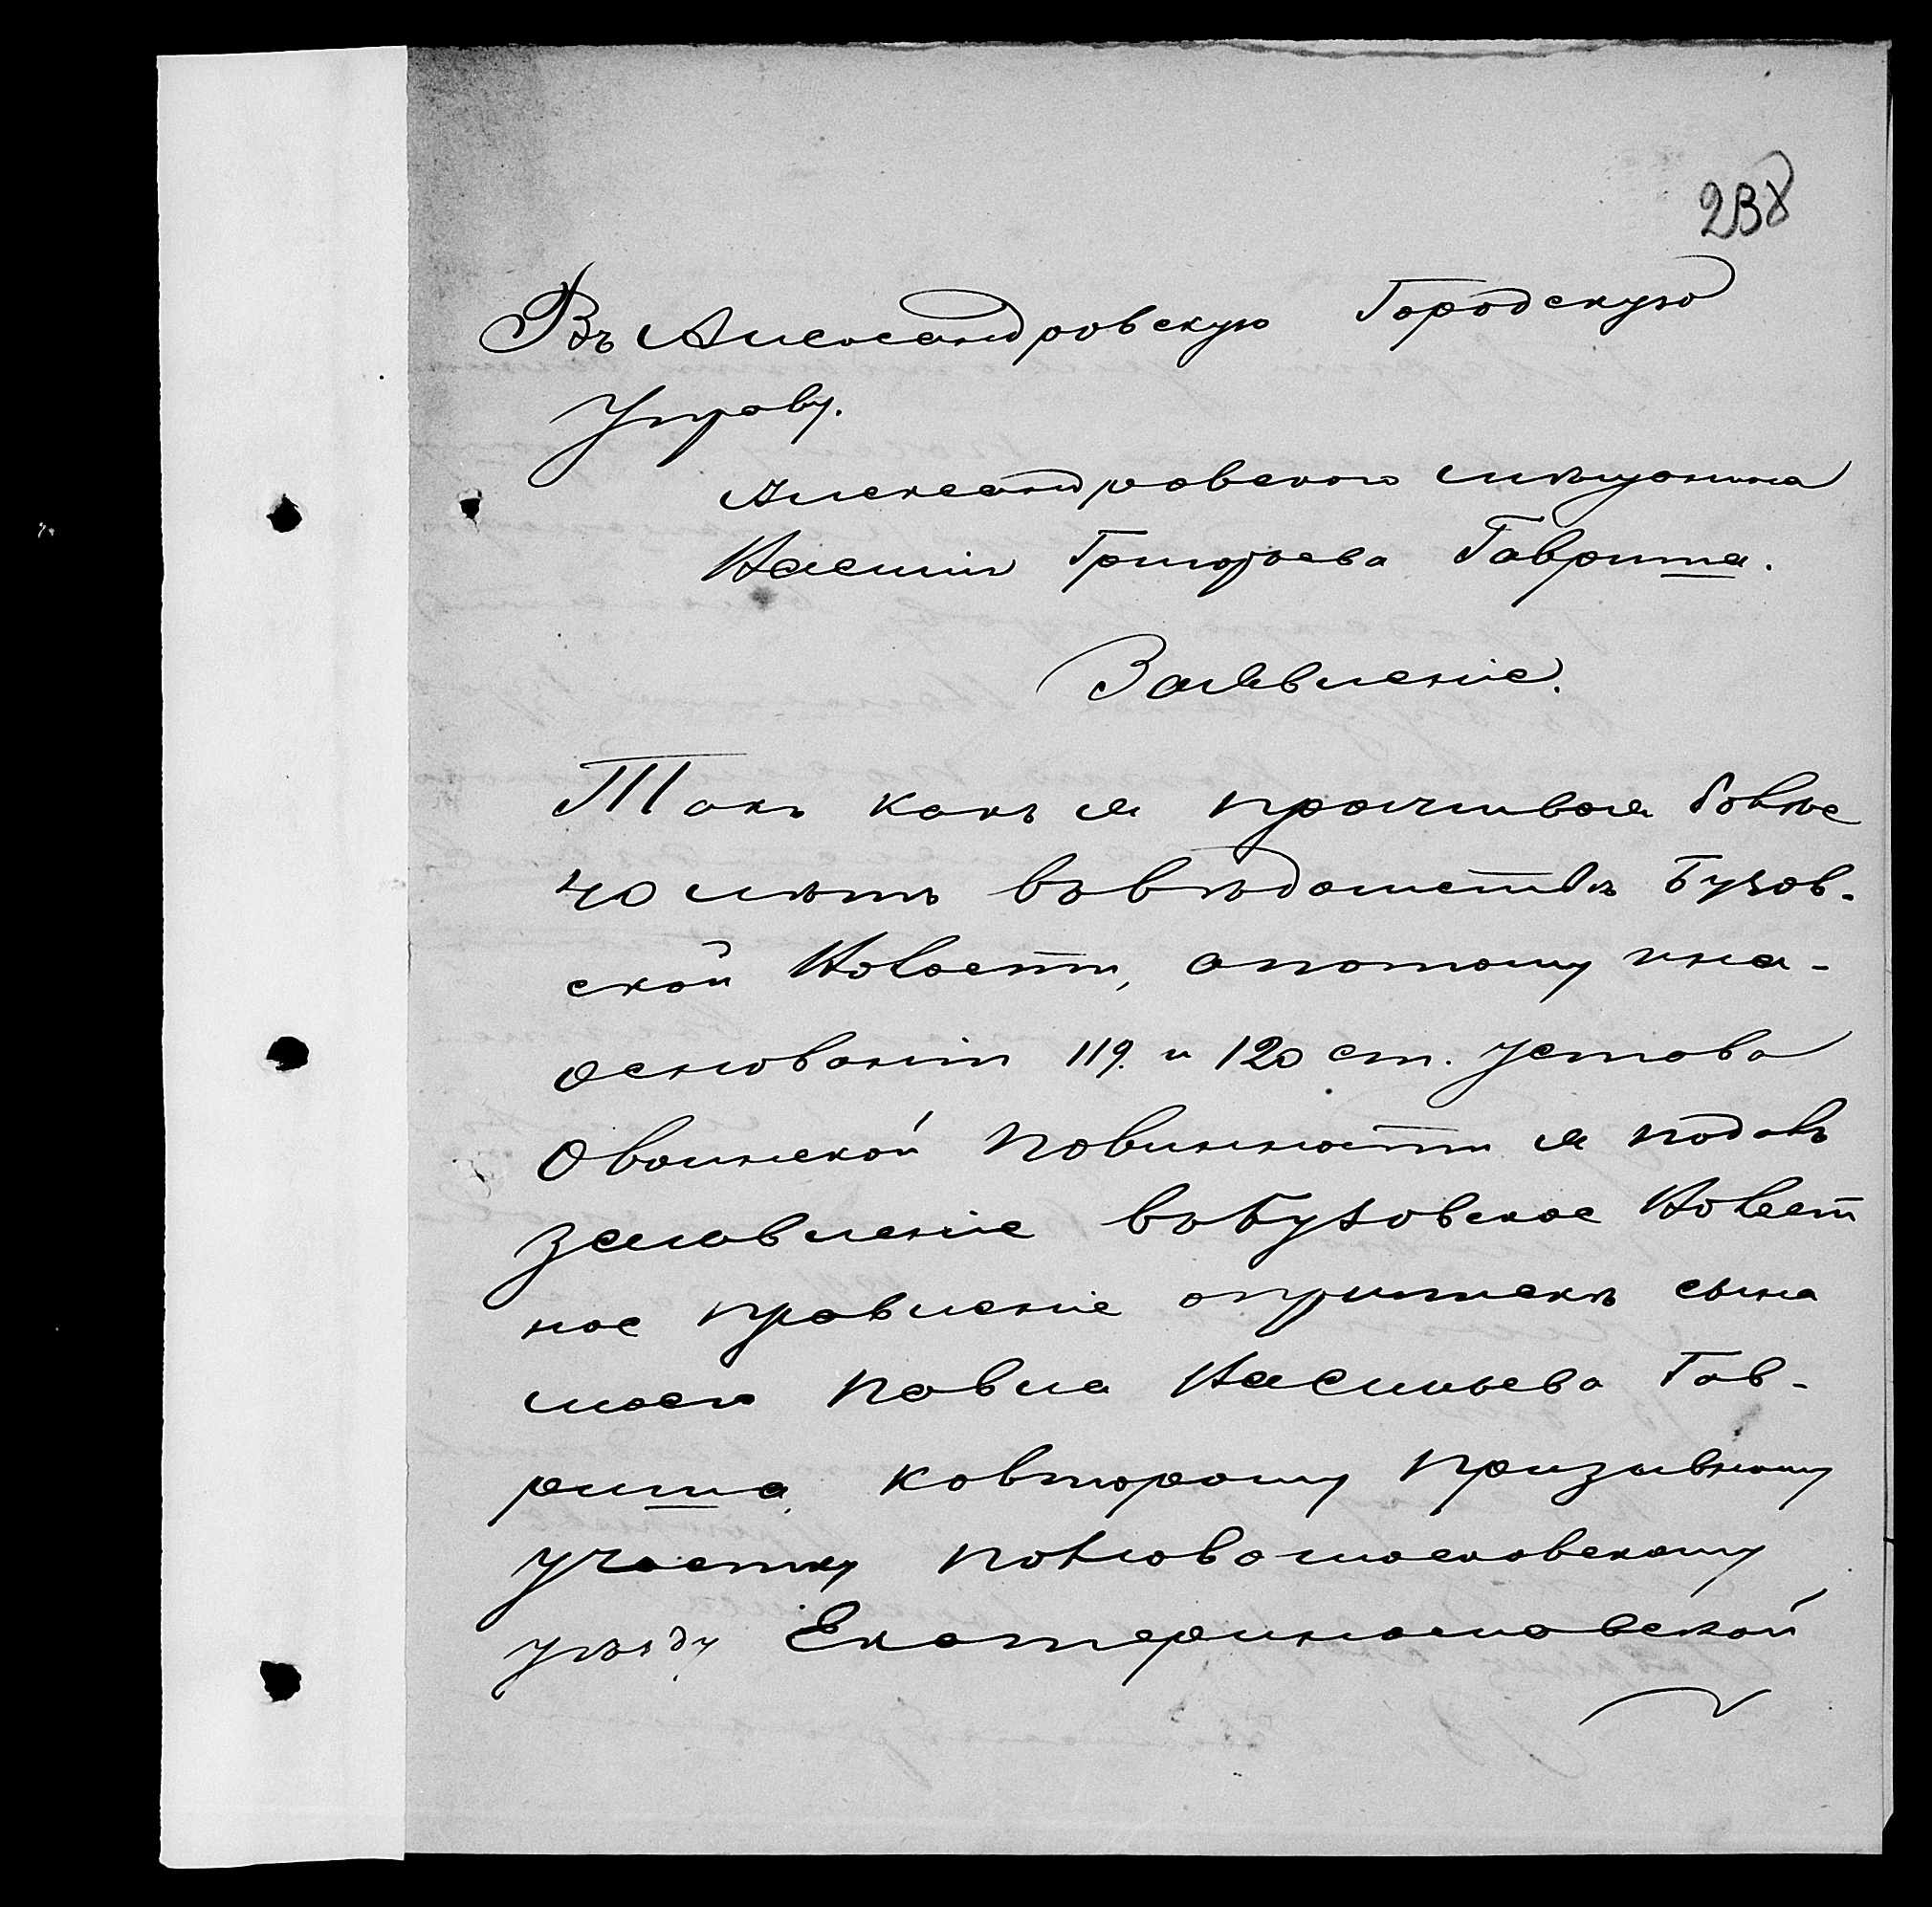 238
Въ Александровскую Городскую
Управу.
Александровскаго мѣщанина
Василія Григорьева Гавриша.
Заявленіе.
Такъ какъ я проживая болѣе
40 лѣтъ въ вѣдомствѣ Бузов-
ской Волости, а потому и на-
основаніи 119. и 120 ст. Устава
О воинской повинности я подалъ
заявленіе въ Бузовское Волост
ное правленіе о припискѣ сына
моего Павла Васильева Гав-
риша ко второму призывному
участку по Новомосковскому
уѣзду Екатеринославской